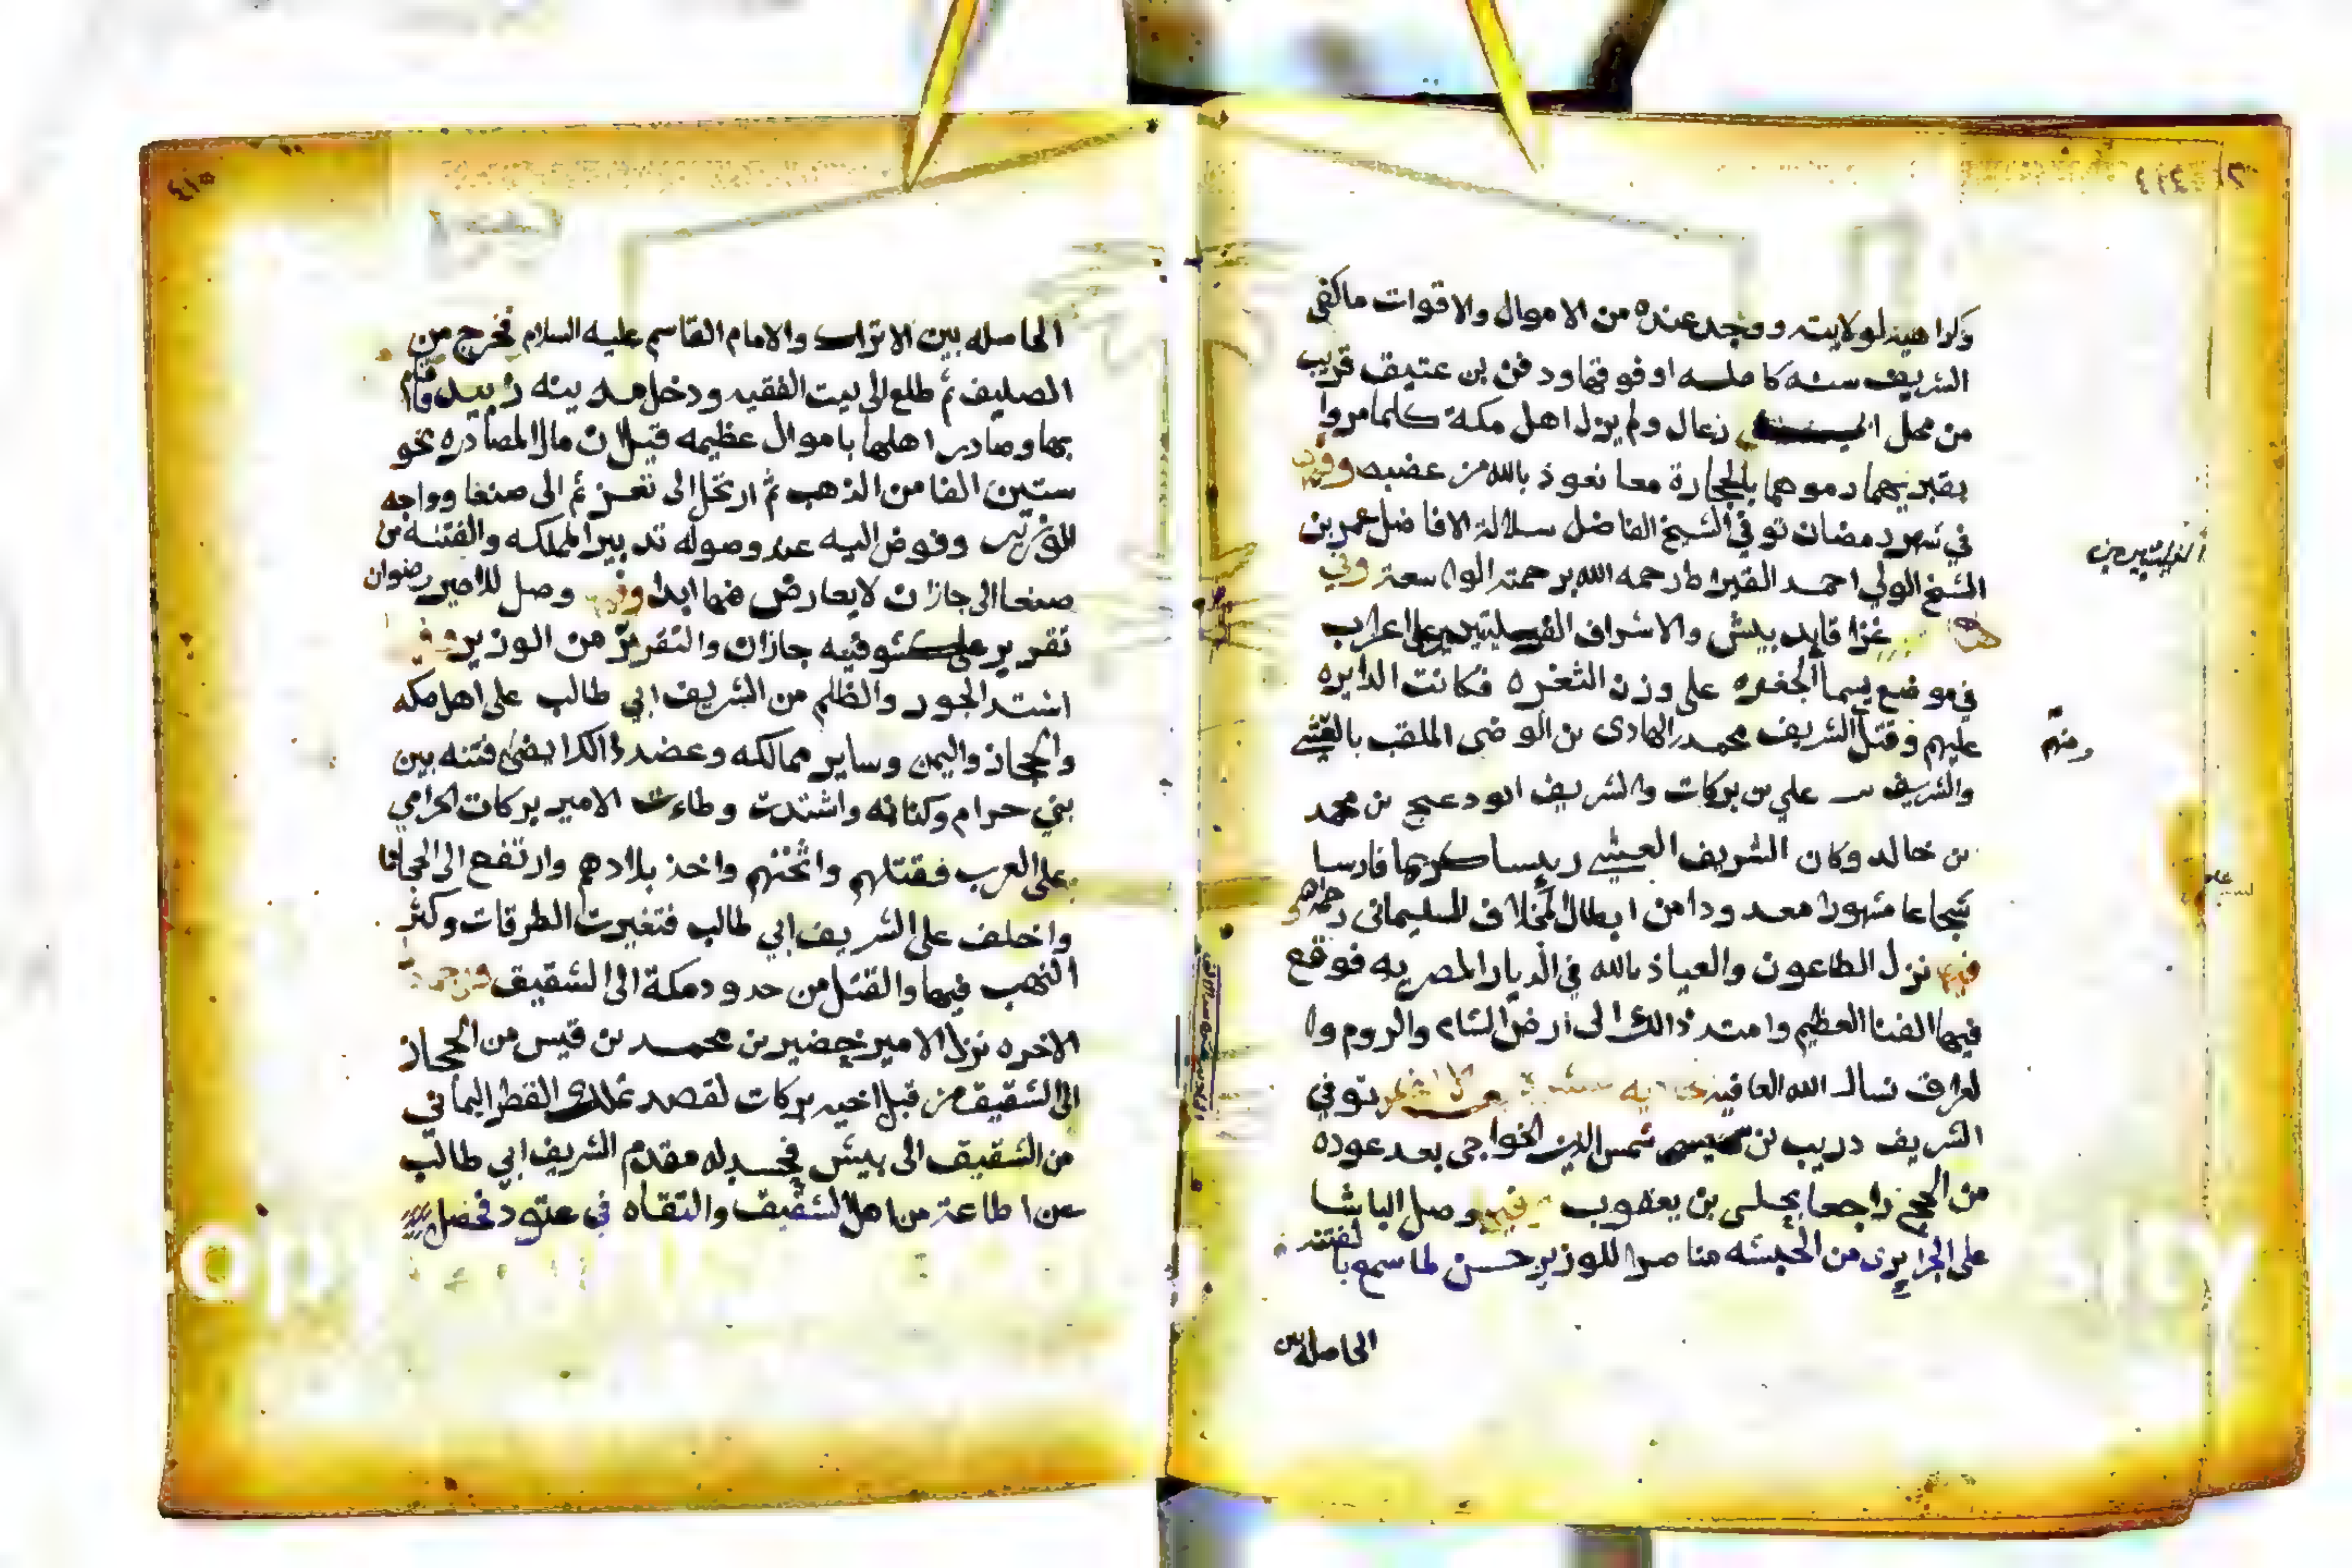 وكراهية لولايته ووجد عنده من الاموال والاقوات ماكفى
الشريف سنه كامله او فوقها ودفن بن عتيق قريب
من محل رغال ولم يزل اهل مكة كلما مروا
بقبريهما رموهما بالحجارة معا نعوذ بالله من غضبه وفيه
في شهر رمضان توفي الشيخ الفاضل سلالة الافاضل عمر بن
الشيخ الولي احمد رحمه الله برحمته الواسعة وفي
غزا قايد بيش والاشراف على اعراب
في موضع يسما الجغره على وزن الثغره فكانت الدايره
عليهم وقتل الشريف محمد الهادى بن الوضى الملقب
والشريف علي بن بركات والشريف ابو دعيج بن محمد
بن خالد وكان الشريف رييسا كريما فارسا
شجاعا مشهورا معدودا من ابطال المخلاف السليمانى رحمه الله
فيها نزل الطاعون والعياذ بالله في الديار المصريه فوقع
فيها الفنا العظيم وامتد ذالك الى ارض الشام والروم وا
لعراق نسال الله العافيه توفي
الشريف دريب بن شمس الدين الخواجى بعد عوده
من الحج راجعا بحلى بن يعقوب وفيها وصل الباشا
على الجزايرى من الحبشه مناصرا للوزير حسن لما سمع بالفتنه
الحاصله بين
ومنهم
الحاصله بين الاتراك والامام القاسم عليه السلام فخرج من
الصليف ثم طلع الى بيت الفقيه ودخل مدينه زبيد فاقام
بها وصادر اهلها باموال عظيمه قيل ان مال المصادره نحو
ستين الفا من الذهب ثم ارتحل الى تعز ثم الى صنعا وواجه
الوزير وفوض اليه عند وصوله تدبير المملكه والفتنه من
صنعا الى جازان لا يعارض فيها ابدا وفيها وصل للامير رضوان
تقرير على كشوفيه جازان والتقرير من الوزير وفيها
اشتد الجور والظلم من الشريف ابي طالب على اهل مكه
والحجاز واليمن وساير ممالكه وعضد ذالك ايضى فتنه بين
بني حرام وكنانه واشتدت وطاءت الامير بركات الحرامي
على العرب فقتلهم واثخنهم واخذ بلادهم وارتفع الى الحجاز
واخلف على الشريف ابي طالب فتغيرت الطرقات وكثر
النهب فيها والقتل من حدود مكة الى الشقيق وفي جمادى
الاخره نزل الامير خضير بن محمد بن قيس من الحجاز
الى الشقيق من قبل اخيه بركات لقصد تملك القطر اليماني
من الشقيق الى بيش فحسد له مقدم الشريف ابي طالب
عن اطاعته من اهل الشقيق والتقاه في عتود فحصل